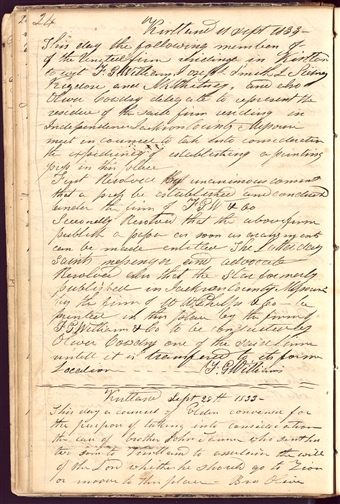 24
Kirtland 11 Sept 1833—
This day the following members of
of the United firm residing in Kirtland
to wit F. G Williams Joseph Smith Sidney
Rigdon and N. K. Whitney, and also
Oliver Cowdry delegate to represent the
residue of the said firm residing in
Independence Jackson County Missouri
met in council to take into consideration
the expediency of establishing a printing
press in this place
First Resolved by unanimous consent
that a press be established and conducted
under the firm of F. G. W & Co
Secondly Resolved that the above firm
publish a paper as soon as arrangements
can be made entitled The Latter day
Saints messenger and advocate
Resolved also that the Star formerly
published in Jackson County Missouri
by the firm of W W Phelps & Co— be
printed in this place by the firm of
F. G Williams & Co to be conducted by
Oliver Cowdry one of the said firm
untill it is transfered to its former
Location F. G Williams
Kirtland Sept 28th 1833—
This day a council of Elders convened for
the purpose of taking into consideration
the case of brother John Tanner who sent his
two sons to Kirtland to ascertain the will
of the Lord whether he should go to Zion
or moove to this place—